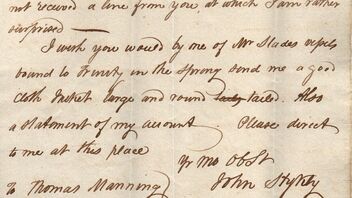 not received a line from you at which I am rather
surprised —
I wish you would by me of Mr Slades vessels
bound to Trinity in the spring send me a good
cloth Jacket large and round tailed. Also
a statement of my account Please direct
to me at this place
Yr Mo Obst
To Thomas Manning John